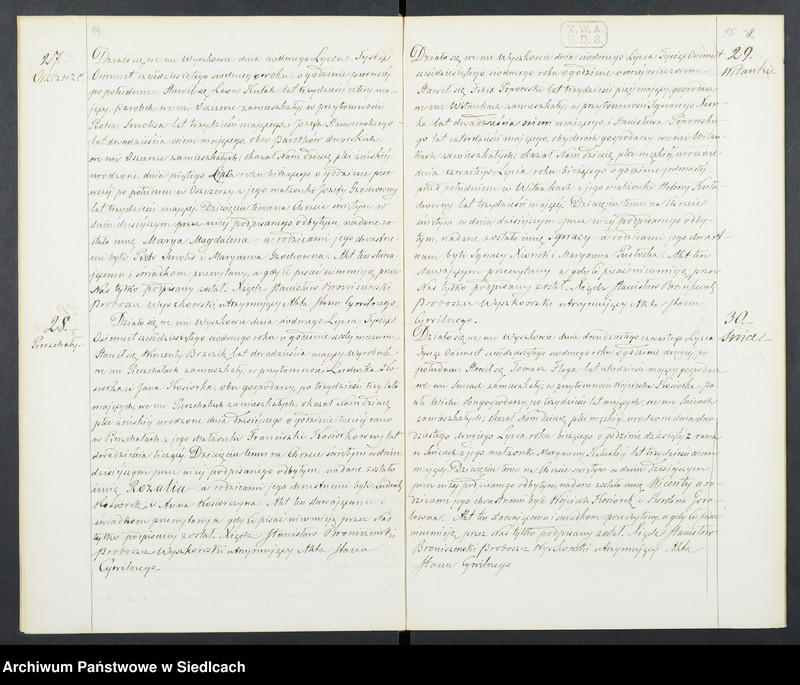 14
27.
Działo się we wsi Wyszkowie dnia siodmego Lipca Tysiąc
Ośmset sześćdziesiątego siodmego roku o godzinie pierwszej
po południu. Stawił się Leon Kulak lat trzydzieści cztery ma-
jący, Parobek we wsi Oszczerze zamieszkały, w przytomności
Piotra Smolisa lat trzydzieści mającego, i Józefa
lat dwadzieścia osiem mającego, obu Parobków dworskich
we wsi Oszczerze zamieszkałych; okazał Nam dziecię płci żeńskiej
urodzone dnia piątego Lipca roku bieżącego o godzinie pier-
wszej po południu w Oszczerzy z jego małżonki Józefy
lat trzydzieści mającej. Dziecięciu temu na Chrzcie świętym w
dniu dzisiejszym przez niżej podpisanego odbytym, nadane zo-
stało imię Marya Magdalena a rodzicami jego chrzestne-
mi byli Piotr Smolis i Maryanna. Akt ten stawa-
jącemu i świadkom przeczytany, a gdy ci pisać nieumieją przez
Nas tylko podpisany został. Xiądz Stanisław Broniszewski
Proboszcz Wyszkowski utrzymujący Akta Stanu Cywilnego.
28.
Pierzchały
Działo się we wsi Wyszkowie dnia siodmego Lipca Tysiąc
Ośmset sześćdziesiątego siodmego roku o godzinie szóstej wieczorem
Stawił się Wincenty Brzezik lat dwadzieścia mający, Wyrobnik
we wsi Pierzchałach zamieszkały, w przytomności Ludwika Ko-
siorka i Jana Kosiorka, obu gospodarzy, po trzydzieści trzy lata
mających, we wsi Pierzchałach zamieszkałych; okazał Nam dziecię
płci żeńskiej urodzone dnia dzisiejszego o godzinie trzeciej rano
w Pierzchałach z jego Małżonki Franciszki Kosiorkowny lat
dwadzieścia liczącej. Dziecięciu temu na Chrzcie świętym w dniu
dzisiejszym przez niżej podpisanego odbytym, nadane zostało
imię Rozalia a rodzicami jego chrzestnemi byli Ludwik
Kosiorek i Anna. Akt ten stawającemu i
świadkom przeczytany a gdy ci pisać nieumieją przez Nas
tylko podpisany został. Xiądz Stanisław Broniszewski
Proboszcz Wyszkowski utrzymujący Akta Stanu
Cywilnego
X.W.A.
S.D.S.
15
8.
29.
Witanki
Działo się we wsi Wyszkowie dnia siodmego Lipca Tysiąc Ośmset
sześćdziesiątego siodmego roku o godzinie osmej wieczorem
Stawił się Felix Popowski lat trzydzieści pięć mający, gospodarz
we wsi Witankach zamieszkały, w przytomności Ignacego
lat dwadzieścia osiem mającego i Stanisława Popowskie-
go lat czterdzieści mającego, obydwóch gospodarzy we wsi Witan-
kach zamieszkałych; okazał Nam dziecię płci męzkiej, urodzone
dnia czwartego Lipca roku bieżącego o godzinie jedenastej
przed południem w Witankach z jego małżonki Heleny
lat trzydzieści mającej. Dziecięciu temu na Chrzcie
świętym w dniu dzisiejszym przez niżej podpisanego odby-
tym, nadane zostało imię Ignacy a rodzicami jego chrzest-
nemi byli Ignacy i Maryanna. Akt ten
stawającemu przeczytany a gdy ci pisać nieumieją przez
Nas tylko podpisany został. Xiądz Stanisław Broniszewski
Proboszcz Wyszkowski utrzymujący Akta Stanu
Cywilnego.
30.
Działo się we wsi Wyszkowie dnia dwudziestego czwartego Lipca
Tysiąc Ośmset sześćdziesiątego siodmego roku o godzinie drugiej po
południu. Stawił się Tomasz lat mający, gospodarz
we wsi zamieszkały, w przytomności Wojciecha Kosiorka
po trzydzieści lat mających, we wsi
zamieszkałych; okazał Nam dziecię płci męzkiej, urodzone dnia dwu-
dziestego drugiego Lipca roku bieżącego o godzinie dziesiątej z rana
w z jego małżonki Maryanny lat trzydzieści
mającej. Dziecięciu temu na Chrzcie świętym w dniu dzisiejszym
przez niżej podpisanego odbytym, nadane zostało imię Wicenty a ro-
dzicami jego chrzestnemi byli Wojciech Kosiorek i
Akt ten stawającemu i świadkom przeczytany, a gdy ci pisać
nieumieją, przez Nas tylko podpisany został. Xiądz Stanisław
Broniszewski Proboszcz Wyszkowski utrzymujący Akta
Stanu Cywilnego
Archiwum Państwowe w Siedlcach